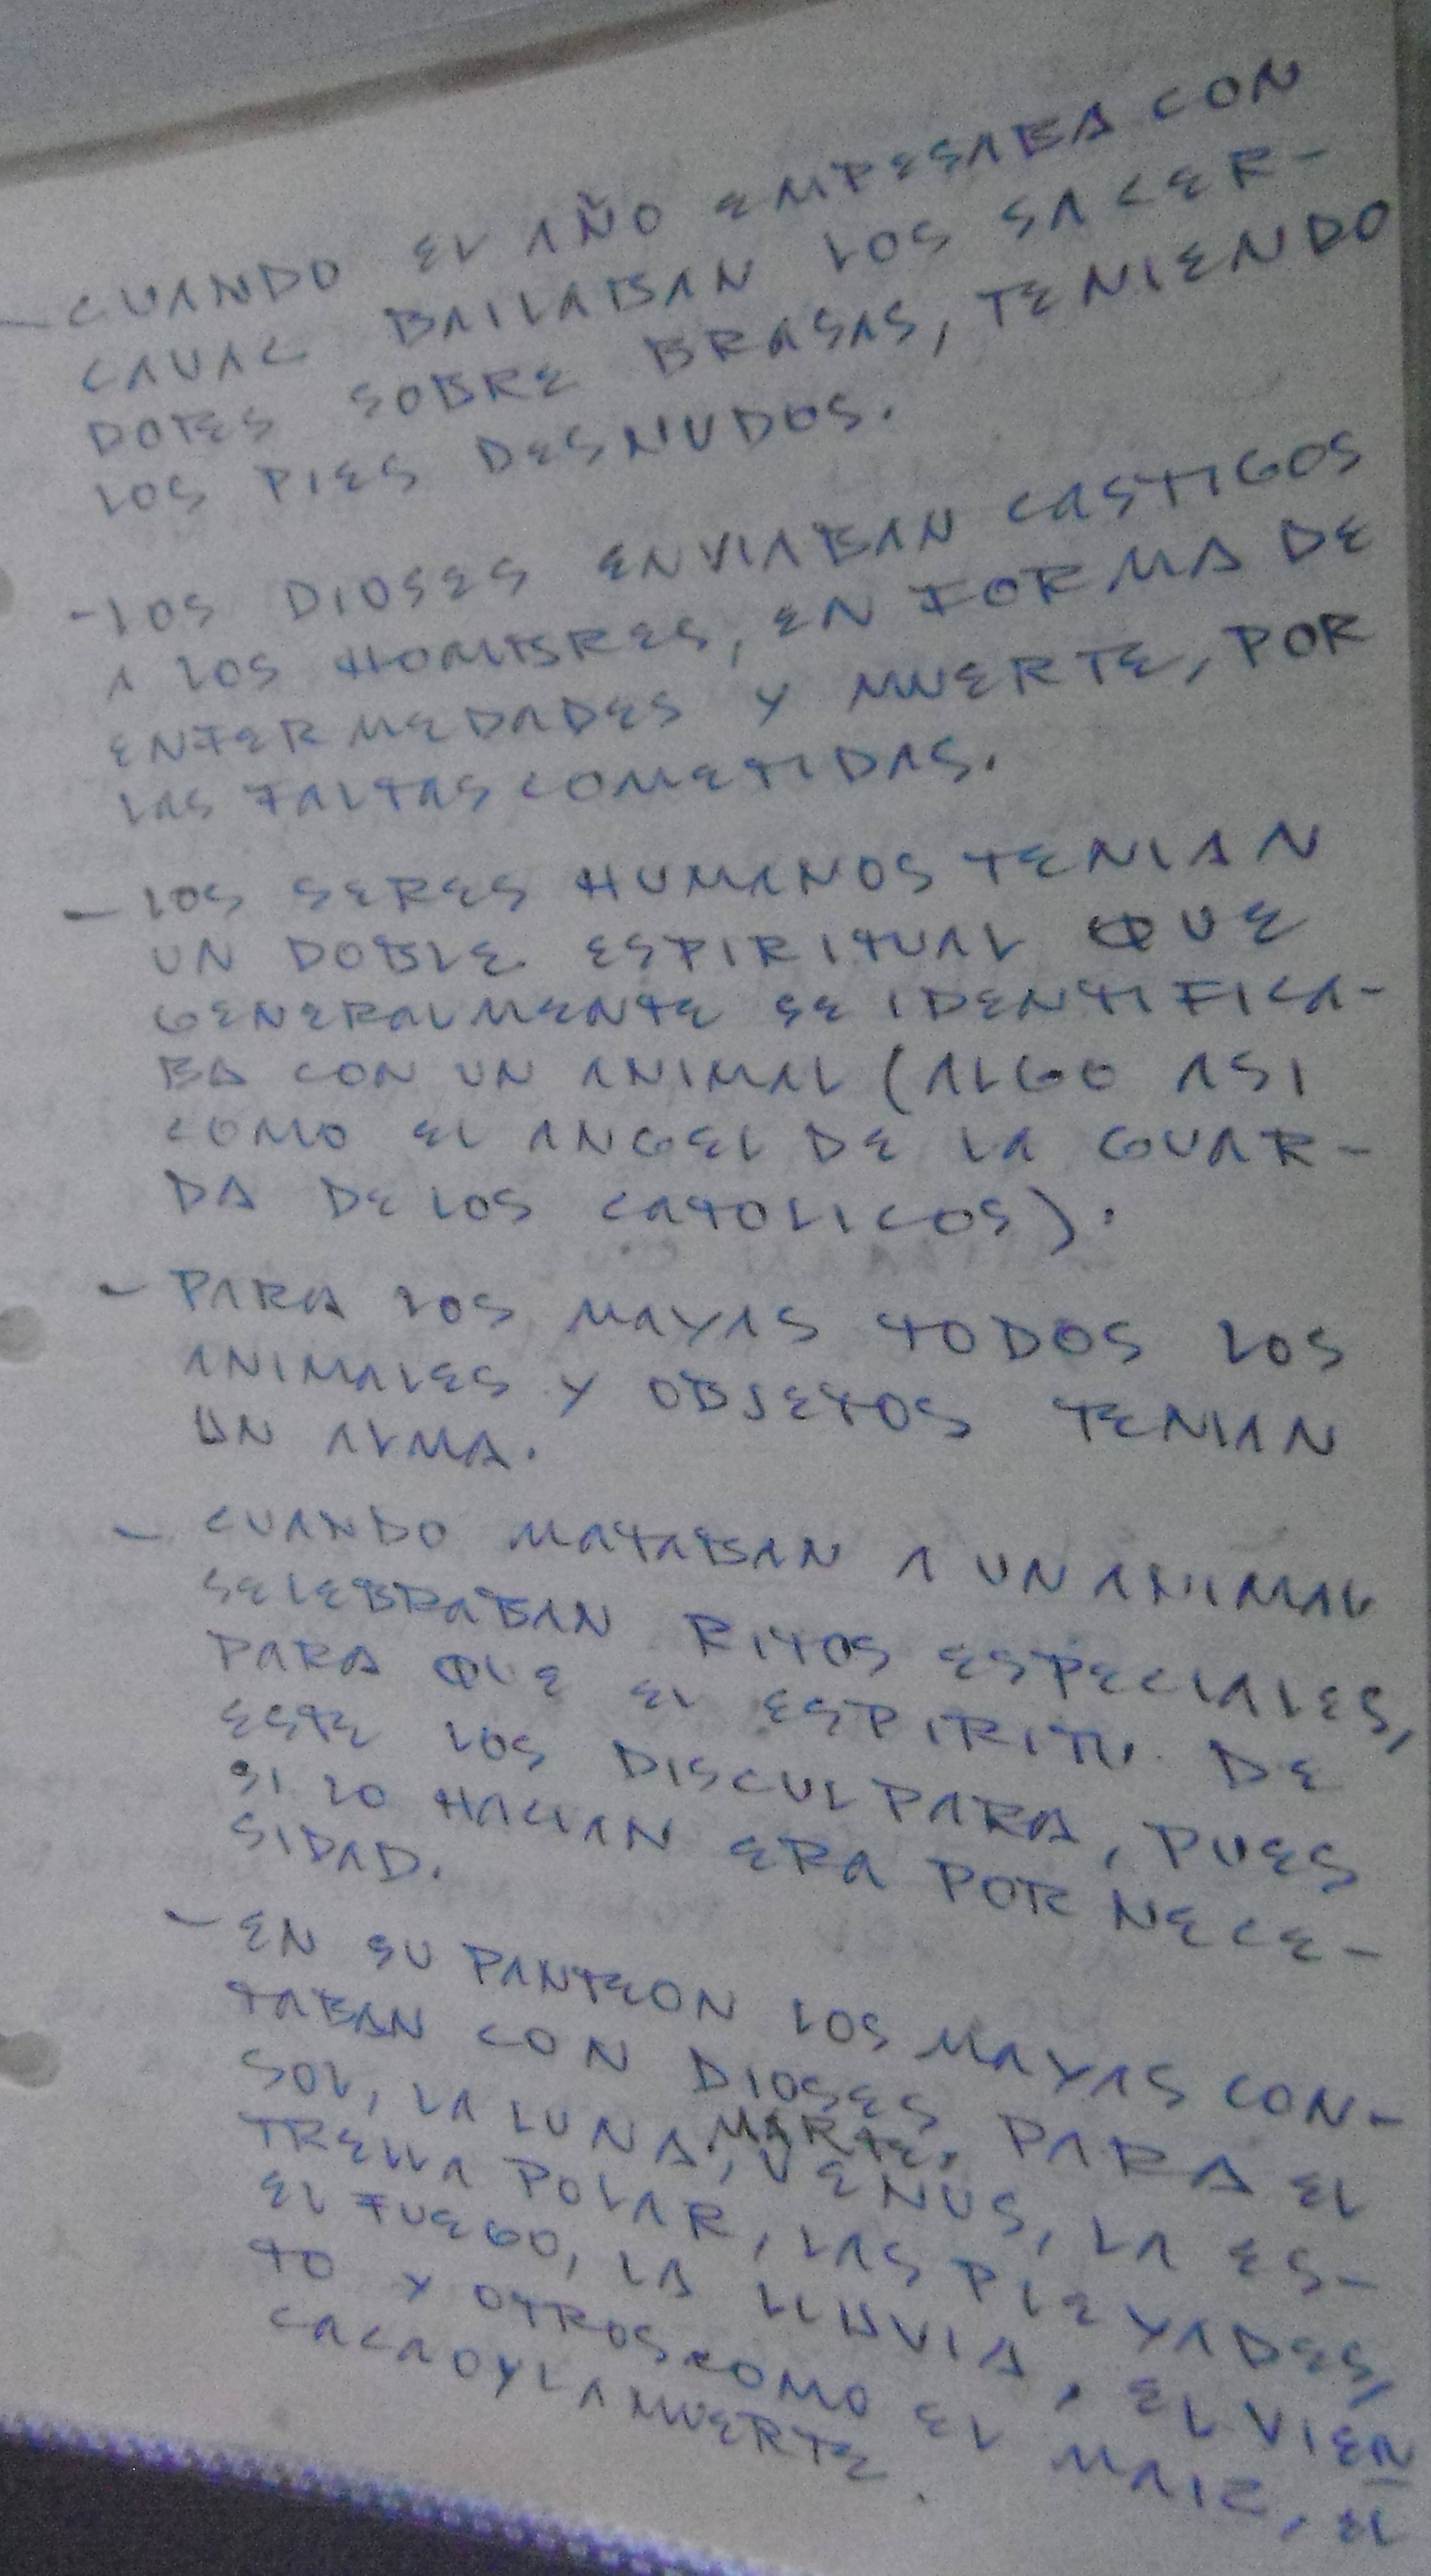 - CUANDO EL AÑO EMPESABA CON
CAUAC BAILABAN LOS SACER-
DOTES SOBRE BRASAS, TENIENDO
LOS PIES DESNUDOS.
- LOS DIOSES ENVIABAN CASTIGOS
A LOS HOMBRES, EN FORMA DE
ENFERMEDADES Y MUERTE, POR
LAS FALTAS COMETIDAS.
- LOS SERES HUMANOS TENIAN
UN DOBLE ESPIRITUAL QUE
GENERALMENTE SE IDENTIFICA-
BA CON UN ANIMAL (ALGO ASI
COMO EL ANGEL DE LA GUAR-
DA DE LOS CATOLICOS).
- PARA LOS MAYAS TODOS LOS
ANIMALES Y OBJETOS TENIAN
UN ALMA.
- CUANDO MATABAN A UN ANIMAL
SELEBRABAN RITOS ESPECIALES,
PARA QUE EL ESPIRITU DE
ESTE LOS DISCULPARA, PUES
SI LO HACIAN ERA POR NECE-
SIDAD.
- EN SU PANTEON LOS MAYAS CON-
TABAN CON DIOSES PARA EL
SOL, LA LUNA, MARTE, VENUS, LA ES-
TRELLA POLAR, LAS PLEYADES,
EL FUEGO, LA LLUVIA, EL VIEN
TO Y OTROS COMO EL MAIZ, EL
CACAO Y LA MUERTE.